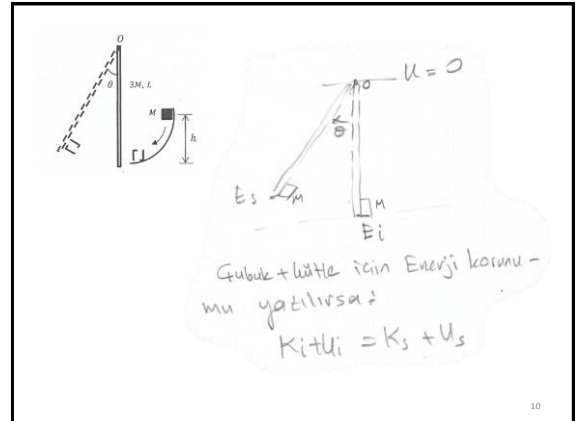 O
θ
3M, L
M
h
U = 0
O
θ
Es
M
M
Ei
Çubuk + kütle için Enerji korunu-
mu yazılırsa:
Ki+Ui = Ks + Us
10